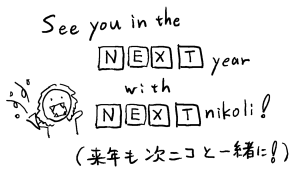 See you in the
NEXT year
with
NEXT nikoli!
(来年も次ニコと一緒に!)